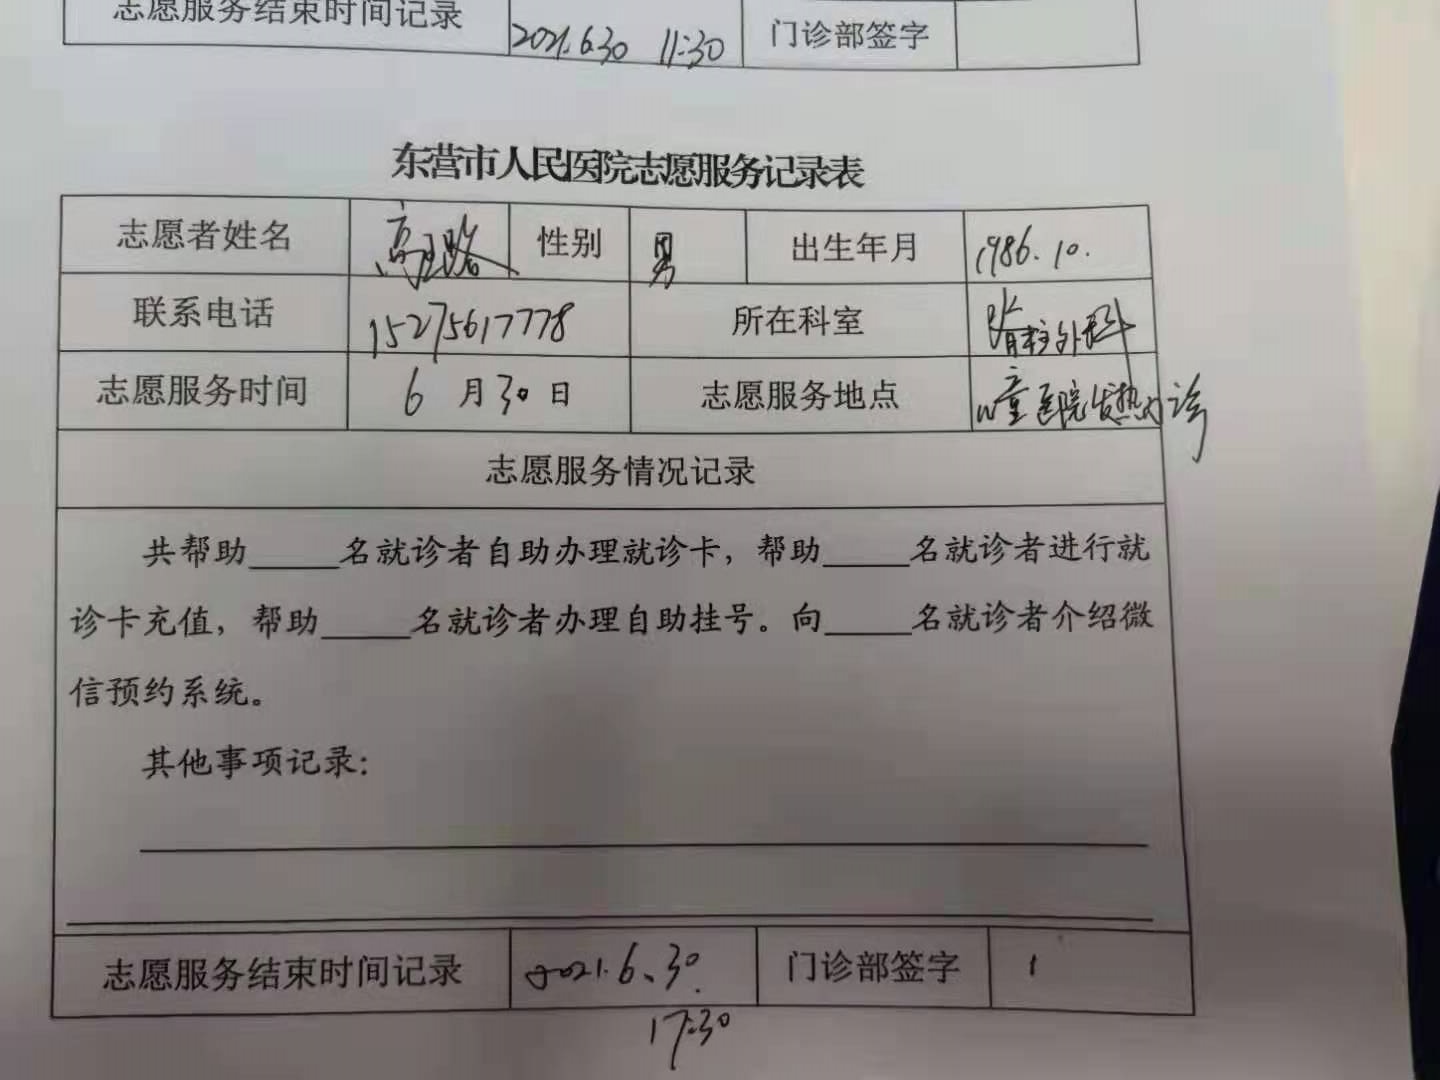 志愿服务结束时间记录 2021.6.30 11:30 门诊部签字
东营市人民医院志愿服务记录表
志愿者姓名 高玉路 性别 男 出生年月 1986.10.
联系电话 15275617778 所在科室 脊柱外科
志愿服务时间 6月30日 志愿服务地点 儿童医院发热门诊
志愿服务情况记录
共帮助_____名就诊者自助办理就诊卡，帮助_____名就诊者进行就
诊卡充值，帮助_____名就诊者办理自助挂号。向_____名就诊者介绍微
信预约系统。
其他事项记录：
志愿服务结束时间记录 2021.6.30. 门诊部签字
17:30